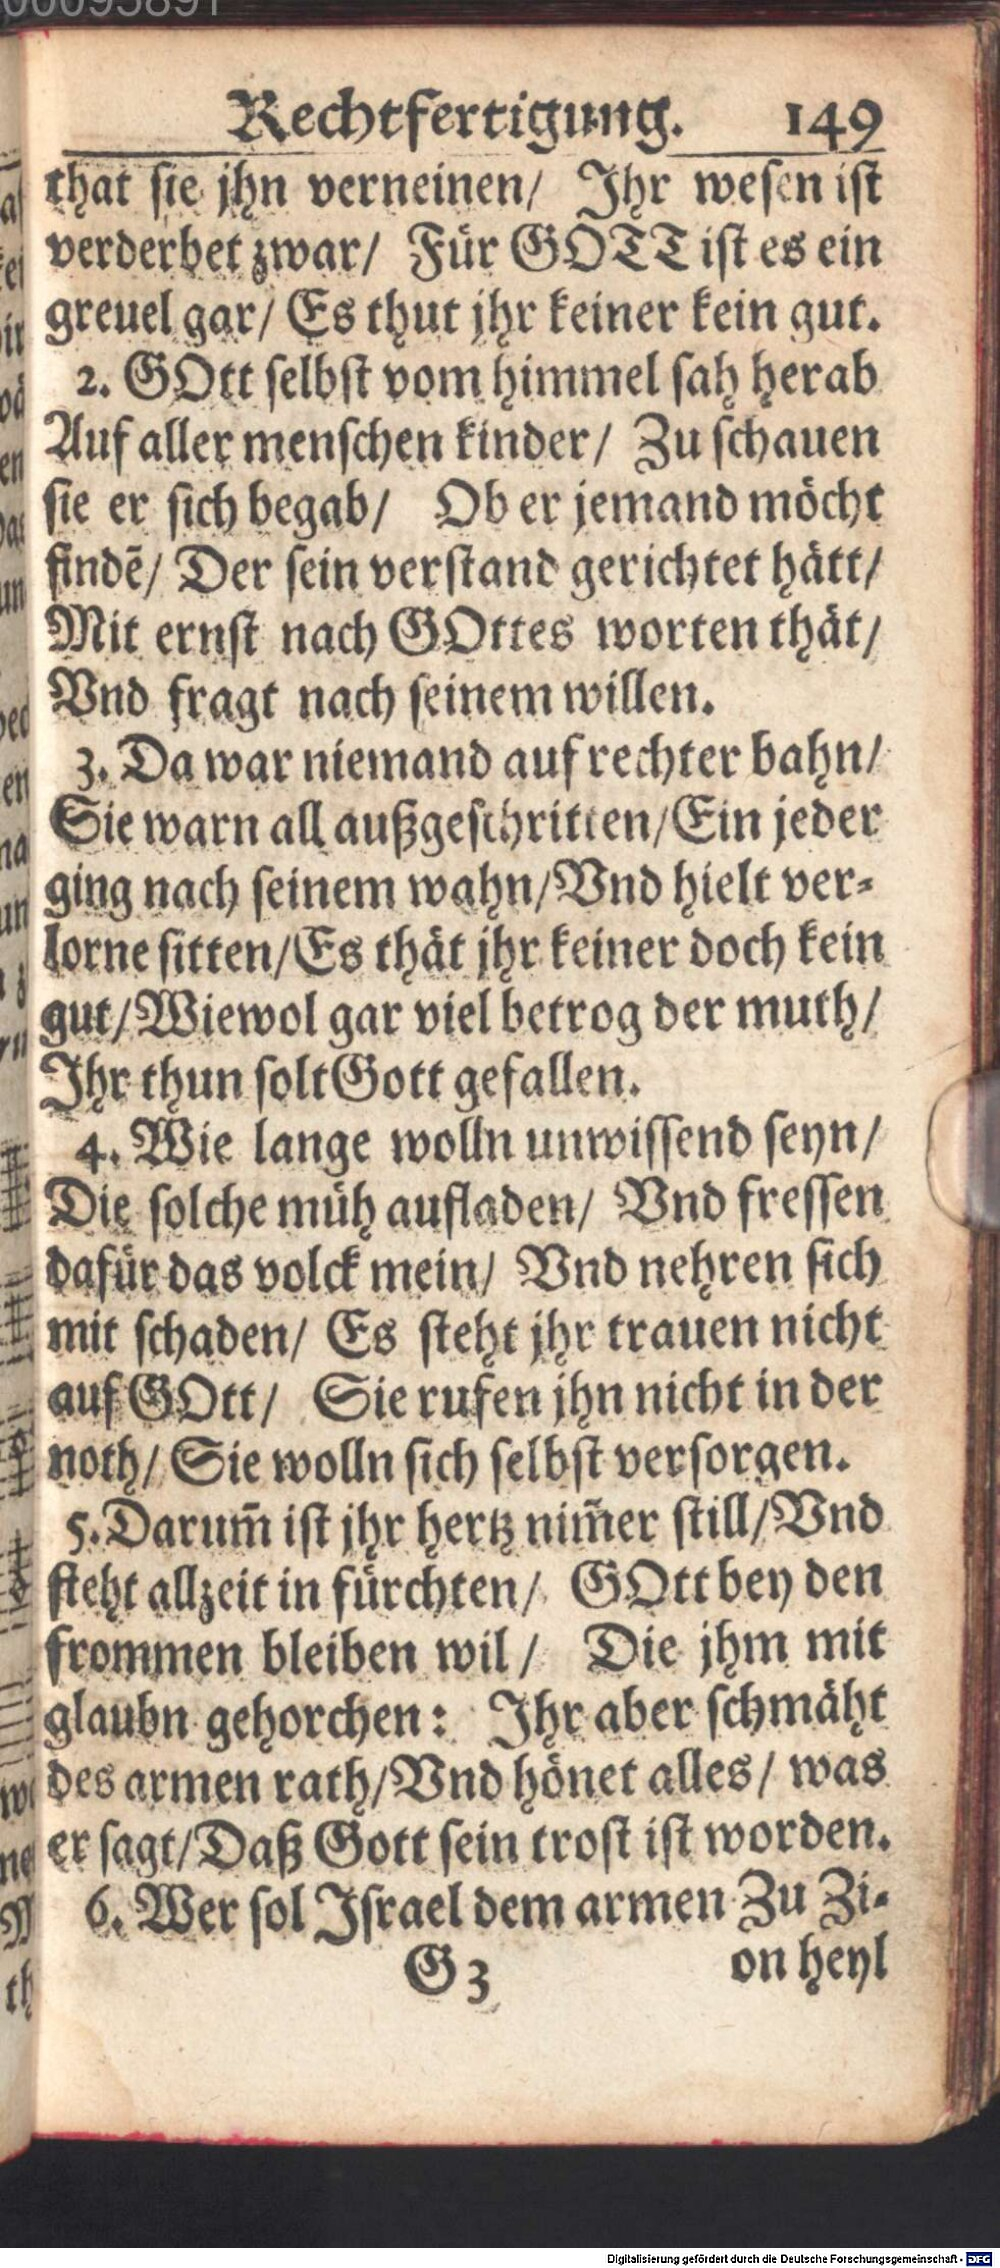 00095891
Rechtfertigung. 149
that sie jhn verneinen/ Ihr wesen ist
verderbet zwar/ Für GOTT ist es ein
greuel gar/ Es thut jhr keiner kein gut.
2. GOtt selbst vom himmel sah herab
Auf aller menschen kinder/ Zu schauen
sie er sich begab/ Ob er jemand möcht
findē/ Der sein verstand gerichtet hätt/
Mit ernst nach GOttes worten thät/
Vnd fragt nach seinem willen.
3. Da war niemand auf rechter bahn/
Sie warn all außgeschritten/Ein jeder
ging nach seinem wahn/Vnd hielt ver-
lorne sitten/Es thät jhr keiner doch kein
gut/Wiewol gar viel betrog der muth/
Ihr thun solt Gott gefallen.
4. Wie lange wolln unwissend seyn/
Die solche müh aufladen/ Vnd fressen
dafür das volck mein/ Vnd nehren sich
mit schaden/ Es steht jhr trauen nicht
auf GOtt/ Sie rufen jhn nicht in der
noth/ Sie wolln sich selbst versorgen.
5. Darum̄ ist jhr hertz nim̄er still/Vnd
steht allzeit in fürchten/ GOtt bey den
frommen bleiben wil/ Die jhm mit
glaubn gehorchen: Ihr aber schmäht
des armen rath/Vnd hönet alles/ was
er sagt/Daß Gott sein trost ist worden.
6. Wer sol Israel dem armen Zu Zi-
G 3 on heyl
Digitalisierung gefördert durch die Deutsche Forschungsgemeinschaft - DFG